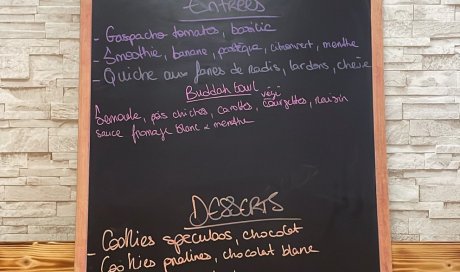 Entrées
- Gaspacho tomates, basilic
- Smoothie, banane, pastèque, citron vert, menthe
- Quiche aux fanes de radis, lardons, chèvre
Buddah bowl végé
Semoule, pois chiches, carottes, courgettes, raisin
sauce fromage blanc & menthe
DESSERTS
- Cookies speculoos, chocolat
- Cookies pralines, chocolat blanc